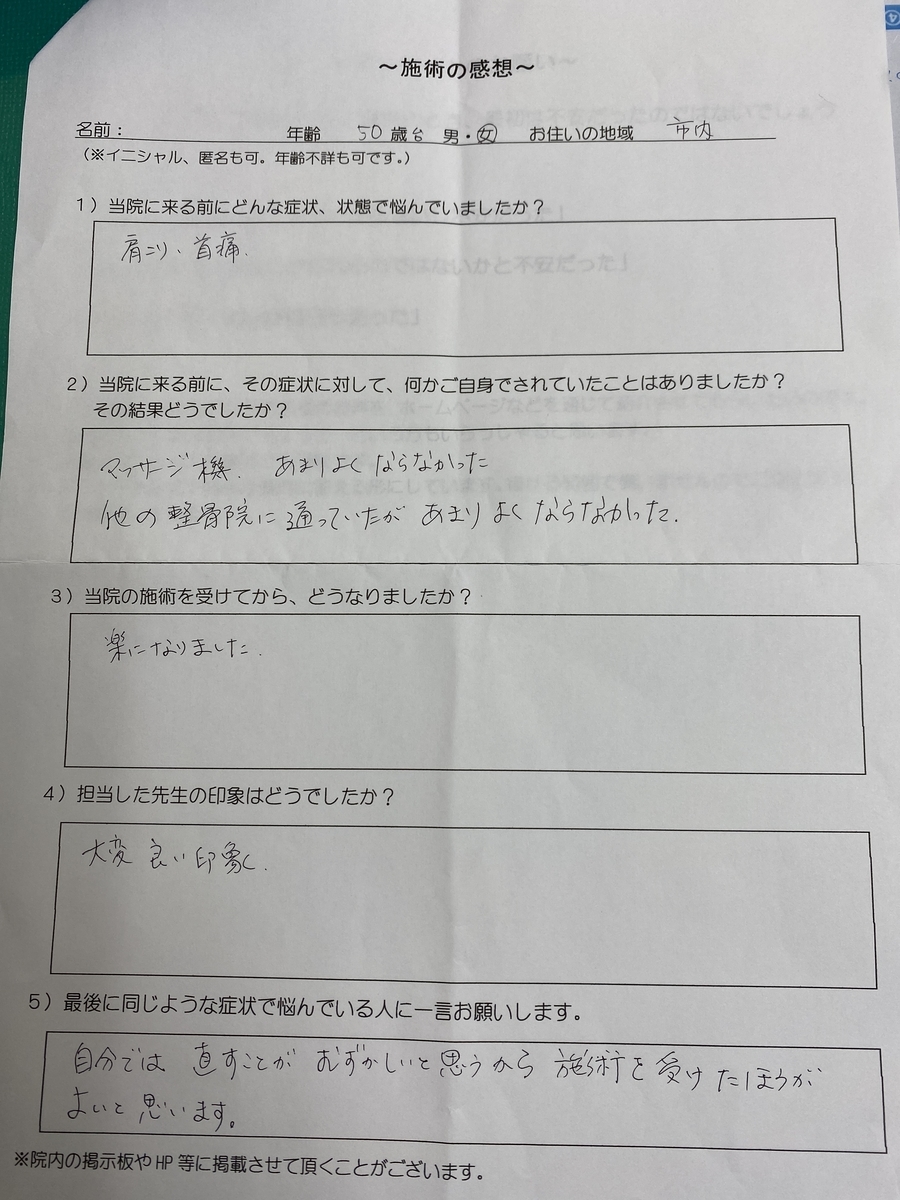 ～施術の感想～
名前： 年齢 50歳台 男・女 お住いの地域 市内
（※イニシャル、匿名も可。年齢不詳も可です。）
１）当院に来る前にどんな症状、状態で悩んでいましたか？
肩こり、首痛.
２）当院に来る前に、その症状に対して、何かご自身でされていたことはありましたか？
その結果どうでしたか？
マッサージ機. あまりよくならなかった
他の整骨院に通っていたがあまりよくならなかった.
３）当院の施術を受けてから、どうなりましたか？
楽になりました.
４）担当した先生の印象はどうでしたか？
大変良い印象.
５）最後に同じような症状で悩んでいる人に一言お願いします。
自分では直すことがむずかしいと思うから施術を受けたほうが
よいと思います。
※院内の掲示板やHP等に掲載させて頂くことがございます。